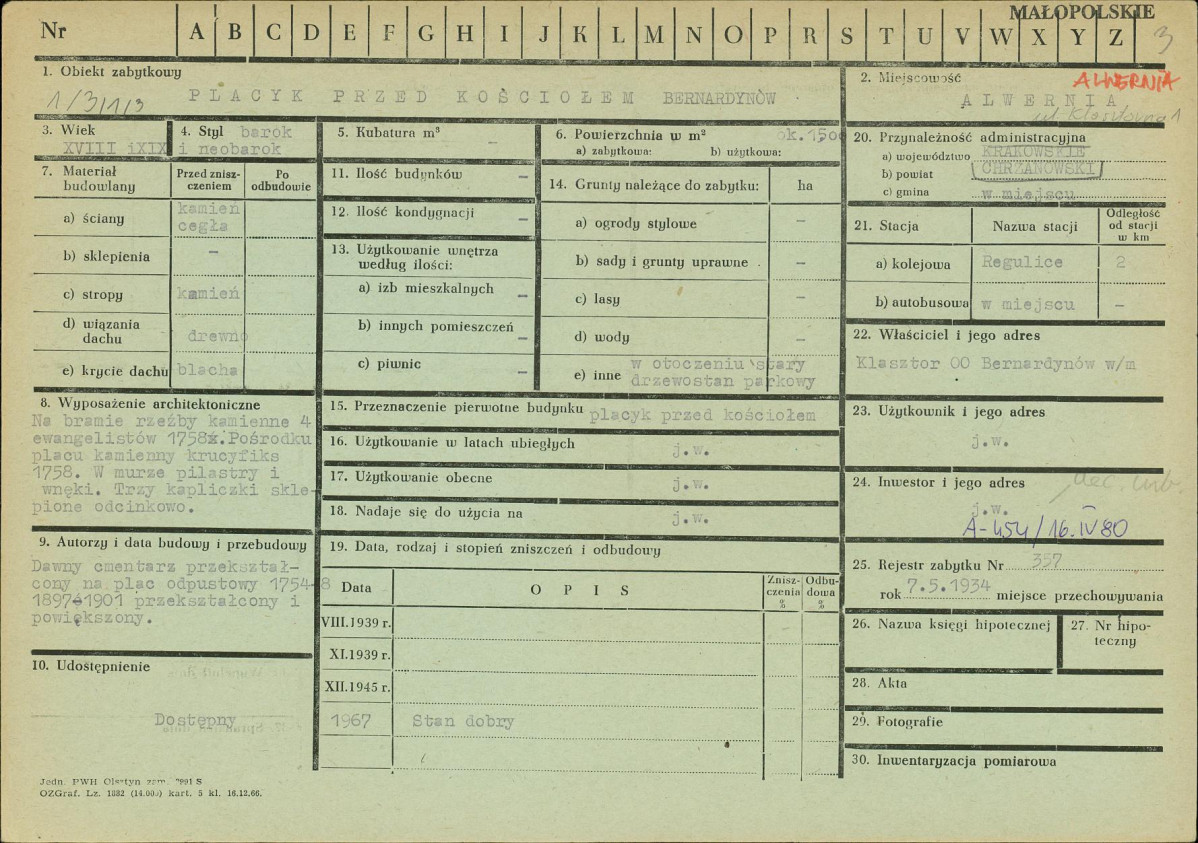 MAŁOPOLSKIE
Nr A B C D E F G H I J K L M N O P R S T U V W X Y Z 3
1. Obiekt zabytkowy
1/3/1/3
PLACYK PRZED KOŚCIOŁEM BERNARDYNÓW
2. Miejscowość
ALWERNIA
ALWERNIA
ul. Klasztorna 1
3. Wiek
XVIII iXIX
4. Styl barok
i neobarok
5. Kubatura m³
-
6. Powierzchnia w m² ok.1500
a) zabytkowa: b) użytkowa:
7. Materiał budowlany
Przed znisz-
czeniem
Po
odbudowie
a) ściany kamień
cegła
b) sklepienia -
c) stropy kamień
d) wiązania
dachu drewno
e) krycie dachu blacha
11. Ilość budynków -
12. Ilość kondygnacji -
13. Użytkowanie wnętrza
według ilości:
a) izb mieszkalnych -
b) innych pomieszczeń -
c) piwnic -
14. Grunty należące do zabytku: ha
a) ogrody stylowe -
b) sady i grunty uprawne . -
c) lasy -
d) wody -
e) inne w otoczeniu stary
drzewostan parkowy
20. Przynależność administracyjna
a) województwo KRAKOWSKIE
b) powiat CHRZANOWSKI
c) gmina w miejscu
21. Stacja Nazwa stacji
Odległość
od stacji
w km
a) kolejowa Regulice 2
b) autobusowa w miejscu -
22. Właściciel i jego adres
Klasztor OO Bernardynów w/m
23. Użytkownik i jego adres
j.w.
24. Inwestor i jego adres
j.w.
A-454/16.IV 80
25. Rejestr zabytku Nr 357
rok 7.5.1934 miejsce przechowywania
26. Nazwa księgi hipotecznej
27. Nr hipo-
teczny
28. Akta
29. Fotografie
30. Inwentaryzacja pomiarowa
8. Wyposażenie architektoniczne
Na bramie rzeźby kamienne 4
ewangelistów 1758r.Pośrodku
placu kamienny krucyfiks
1758. W murze pilastry i
wnęki. Trzy kapliczki skle-
pione odcinkowo.
9. Autorzy i data budowy i przebudowy
Dawny cmentarz przekształ-
cony na plac odpustowy 1754-8
1897-1901 przekształcony i
powiększony.
10. Udostępnienie
Dostępny
15. Przeznaczenie pierwotne budynku placyk przed kościołem
16. Użytkowanie w latach ubiegłych j.w.
17. Użytkowanie obecne j.w.
18. Nadaje się do użycia na j.w.
19. Data, rodzaj i stopień zniszczeń i odbudowy
Data
OPIS
Znisz-
czenia
%
Odbu-
dowa
%
VIII.1939 r.
XI.1939 r.
XII.1945 r.
1967 Stan dobry
Jedn. PWH Olsztyn zam. 7991 S
OZGraf. Lz. 1882 (14.000) kart. 5 kl. 16.12.66.